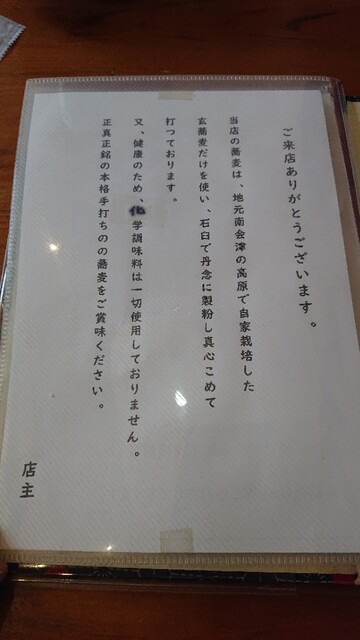 ご来店ありがとうございます。
当店の蕎麦は、地元南会津の高原で自家栽培した
玄蕎麦だけを使い、石臼で丹念に製粉し真心こめて
打つております。
又、健康のため、化学調味料は一切使用しておりません。
正真正銘の本格手打ちのの蕎麦をご賞味ください。
店主